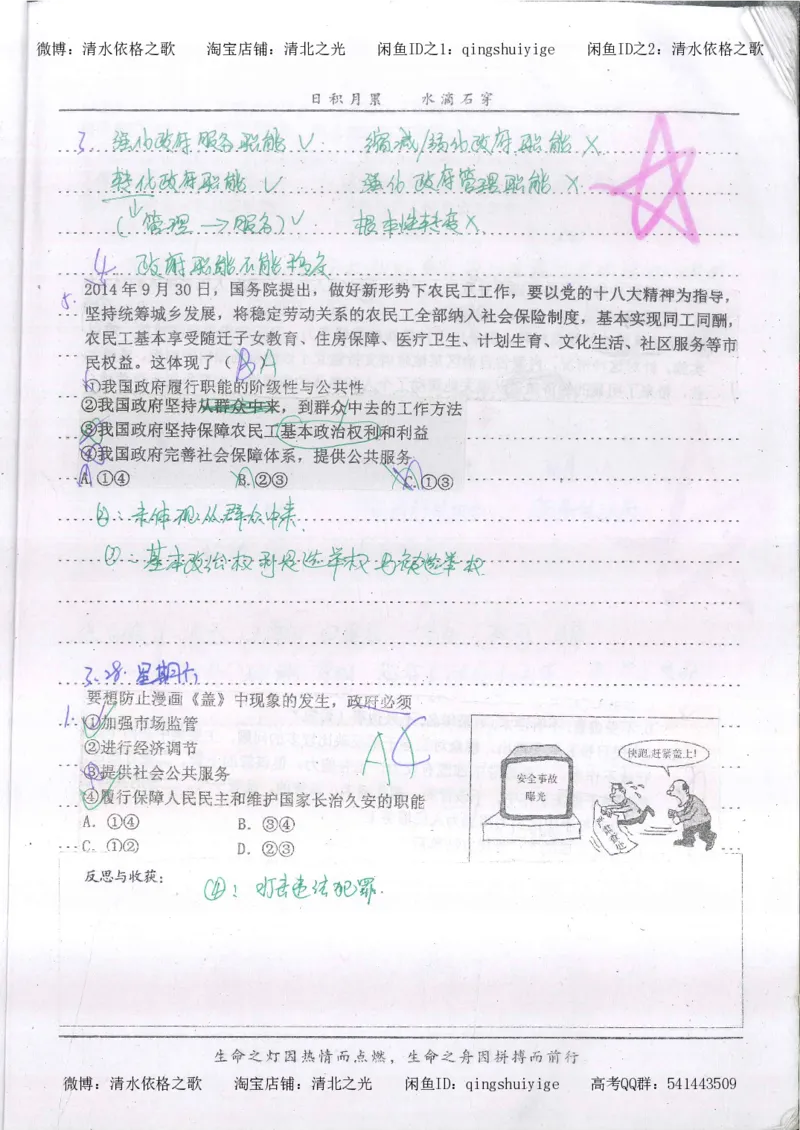 微博：清水依格之歌 淘宝店铺：清北之光 闲鱼ID之1：qingshuiyige 闲鱼ID之2：清水依格之歌
日积月累 水滴石穿
3. 强化政府服务职能 ✓ 缩减/弱化政府职能 ✗
转化政府职能 ✓ 强化政府管理职能 ✗
(管理→服务) ✓ 根本性转变 ✗
4. 政府职能不能转变
5. 2014年9月30日，国务院提出，做好新形势下农民工工作，要以党的十八大精神为指导，
坚持统筹城乡发展，将稳定劳动关系的农民工全部纳入社会保险制度，基本实现同工同酬，
农民工基本享受随迁子女教育、住房保障、医疗卫生、计划生育、文化生活、社区服务等市
民权益。这体现了（B）A
①我国政府履行职能的阶级性与公共性
②我国政府坚持从群众中来，到群众中去的工作方法
③我国政府坚持保障农民工基本政治权利和利益
④我国政府完善社会保障体系，提供公共服务
A.①④ B.②③ C.①③
②：未体现从群众中来.
③：基本政治权利是选举权与被选举权
3.28 星期六
1. 要想防止漫画《盖》中现象的发生，政府必须
①加强市场监管
②进行经济调节
③提供社会公共服务
④履行保障人民民主和维护国家长治久安的职能
A C
A．①④ B．③④
C．①② D．②③
快跑，赶紧盖上！
安全事故
曝光
反思与收获：
④：打击违法犯罪.
生命之灯因热情而点燃，生命之舟因拼搏而前行
微博：清水依格之歌 淘宝店铺：清北之光 闲鱼ID：qingshuiyige 高考QQ群：541443509